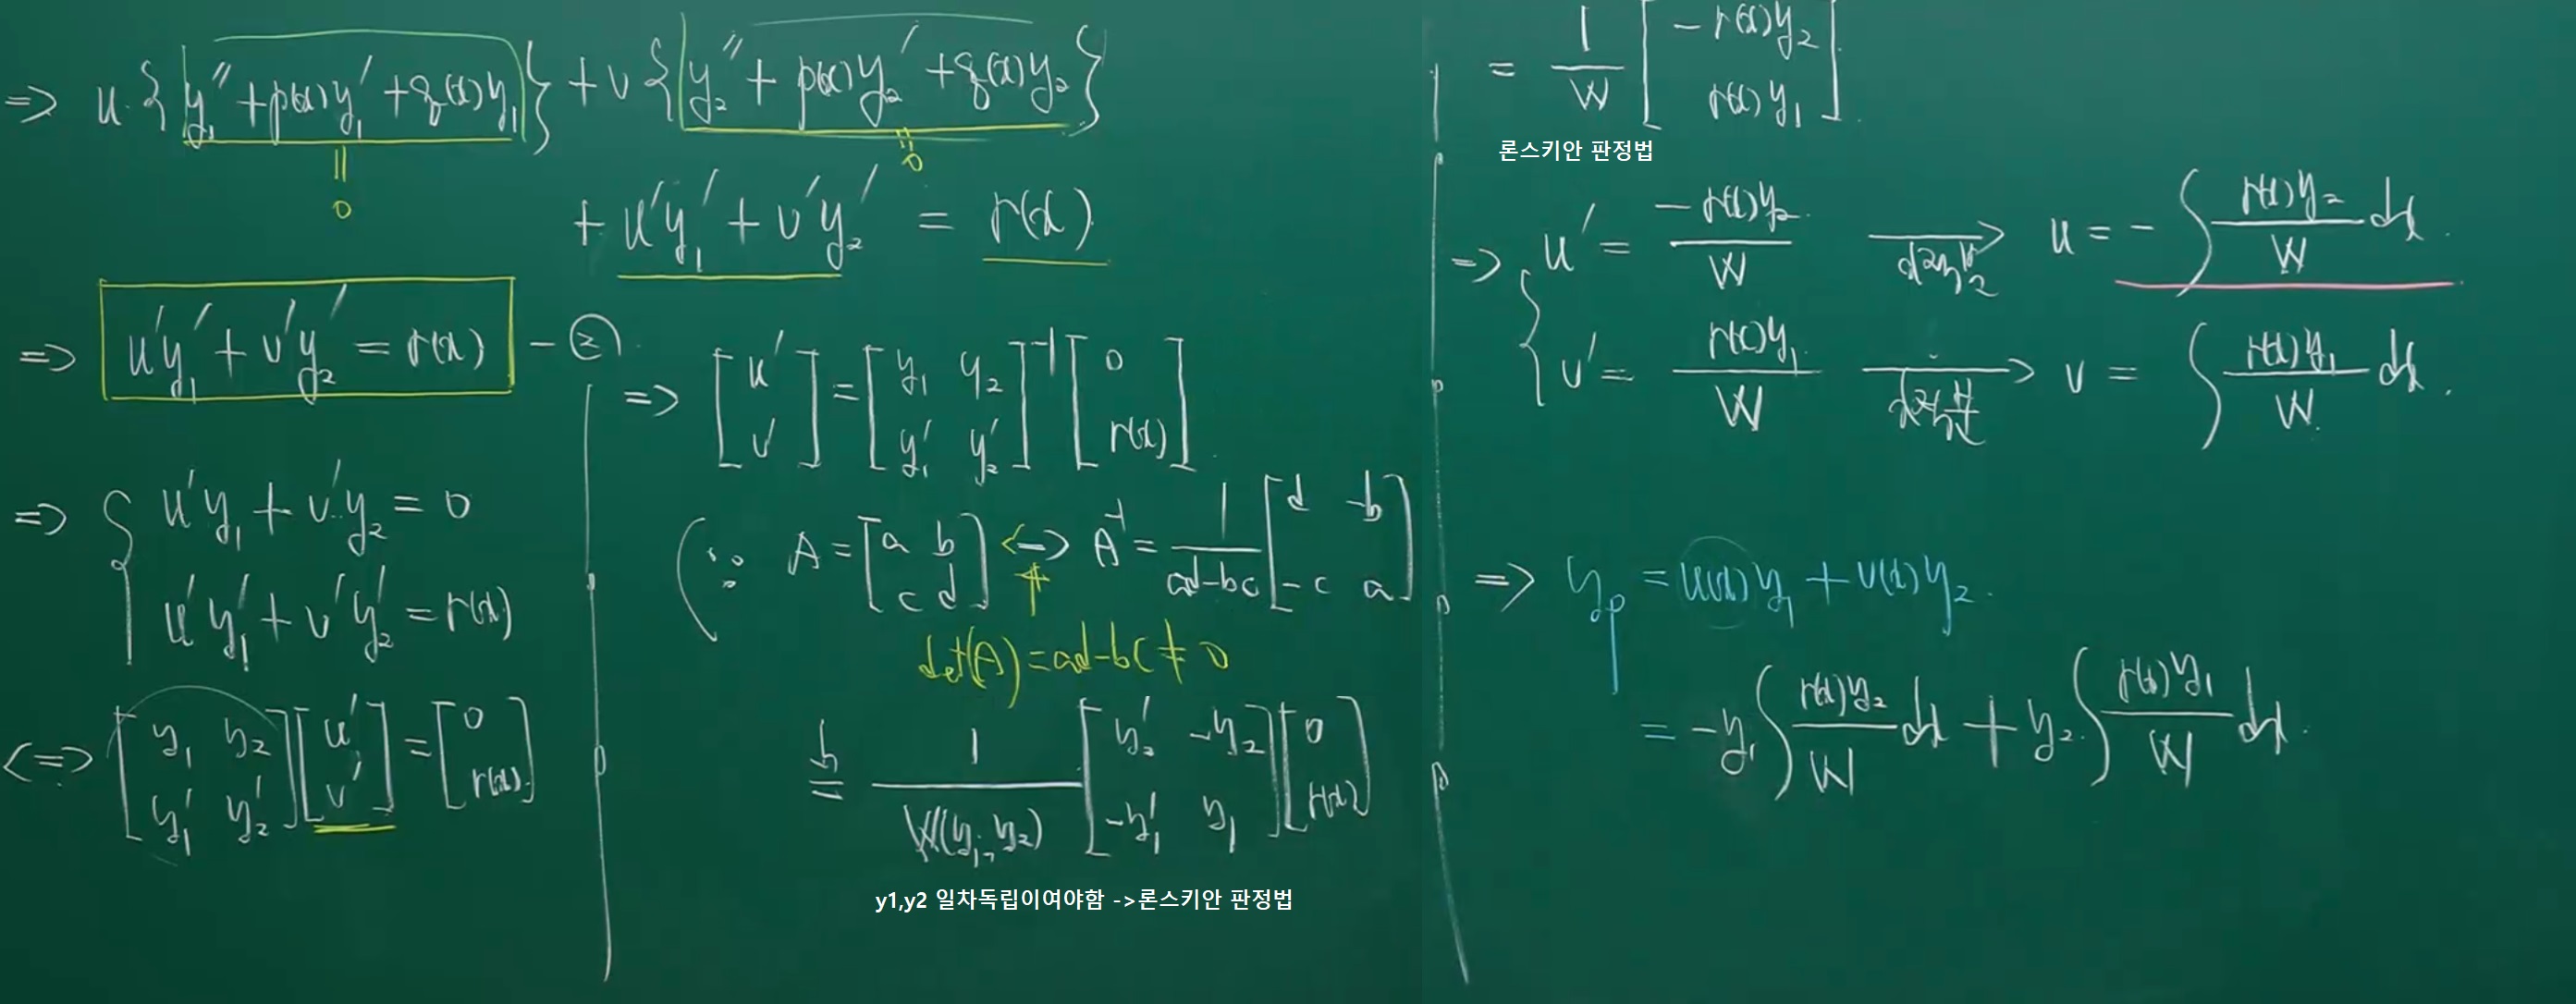 => u·{y₁″+p(x)y₁′+q(x)y₁}+v{y₂″+p(x)y₂′+q(x)y₂}
|| 0
|| 0
+u′y₁′+v′y₂′ = r(x)
=> u′y₁′+v′y₂′=r(x) - ②
=> { u′y₁+v′y₂=0
u′y₁′+v′y₂′=r(x)
<=> [y₁ y₂; y₁′ y₂′][u′; v′]=[0; r(x)]
=> [u′; v′]=[y₁ y₂; y₁′ y₂′]⁻¹[0; r(x)]
(∵ A=[a b; c d] <-> A⁻¹=1/(ad-bc)[d -b; -c a]
det(A)=ad-bc≠0
= 1/W(y₁,y₂) [y₂′ -y₂; -y₁′ y₁][0; r(x)]
y1,y2 일차독립이여야함 ->론스키안 판정법
= 1/W [-r(x)y₂; r(x)y₁]
론스키안 판정법
=> { u′= -r(x)y₂/W → u=-∫ r(x)y₂/W dx.
v′= r(x)y₁/W → v=∫ r(x)y₁/W dx.
=> yₚ=u(x)y₁+v(x)y₂.
= -y₁∫ r(x)y₂/W dx+y₂∫ r(x)y₁/W dx.